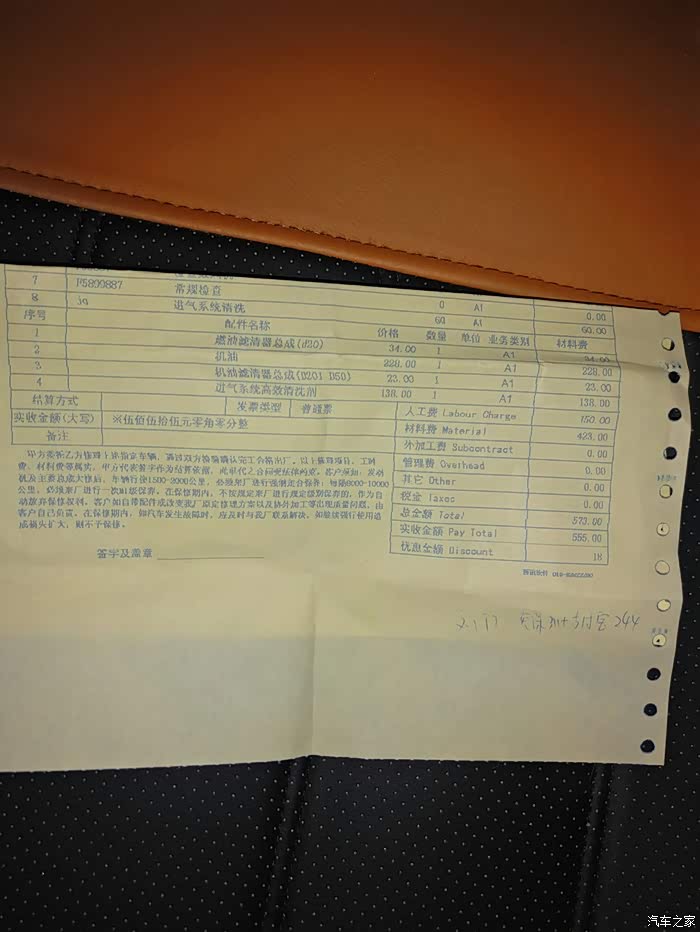 7 P5899887 常规检查 0 A1 0.00
8 jq 进气系统清洗 60 A1 60.00
序号 配件名称 价格 数量 单位 业务类别 材料费
1 燃油滤清器总成(d20) 34.00 1 A1 34.00
2 机油 228.00 1 A1 228.00
3 机油滤清器总成(D201 D50) 23.00 1 A1 23.00
4 进气系统高效清洗剂 138.00 1 A1 138.00
结算方式 发票类型 普通票
实收金额(大写) ※伍佰伍拾伍元零角零分整
备注
人工费 Labour Charge 150.00
材料费 Material 423.00
外加工费 Subcontract 0.00
管理费 Overhead 0.00
其它 Other 0.00
税金 Taxes 0.00
总金额 Total 573.00
实收金额 Pay Total 555.00
优惠金额 Discount 18
甲方委托乙方修理上述指定车辆，通过双方检验确认完工合格出厂。以上修理项目、工时
费、材料费等属实，甲方代表签字作为结算依据，此单代之合同受法律约束。客户须知：发动
机及主要总成大修后，车辆行使1500-2000公里，必须来厂进行强制走合保养；每隔8000-10000
公里，必须来厂进行一次
保养。在保修期内，不按规定来厂进行规定级别保养的，作为自
动放弃保修权利。客户如自带配件或改变我厂原定修理方案以及协外加工等出现质量问题，由
客户自己负责。在保修期内，如汽车发生故障时，应及时与我厂联系解决，如继续强行使用造
成损失扩大，则不予保修。
签字及盖章
支付宝244
汽车之家